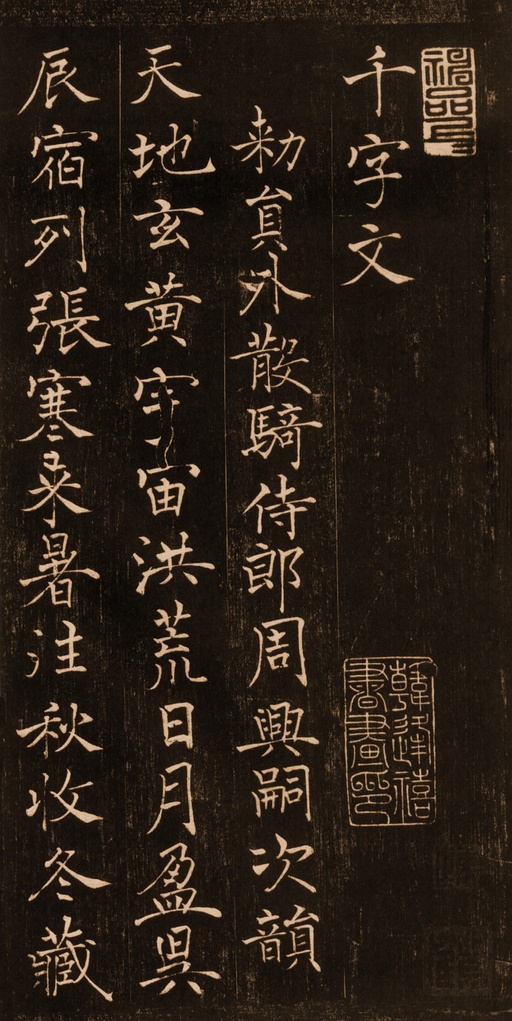 千字文
勑貟外散騎侍郎周興嗣次韻
天地玄黃宇宙洪荒日月盈昃
辰宿列張寒来暑往秋收冬藏
韓逢禧書畫印